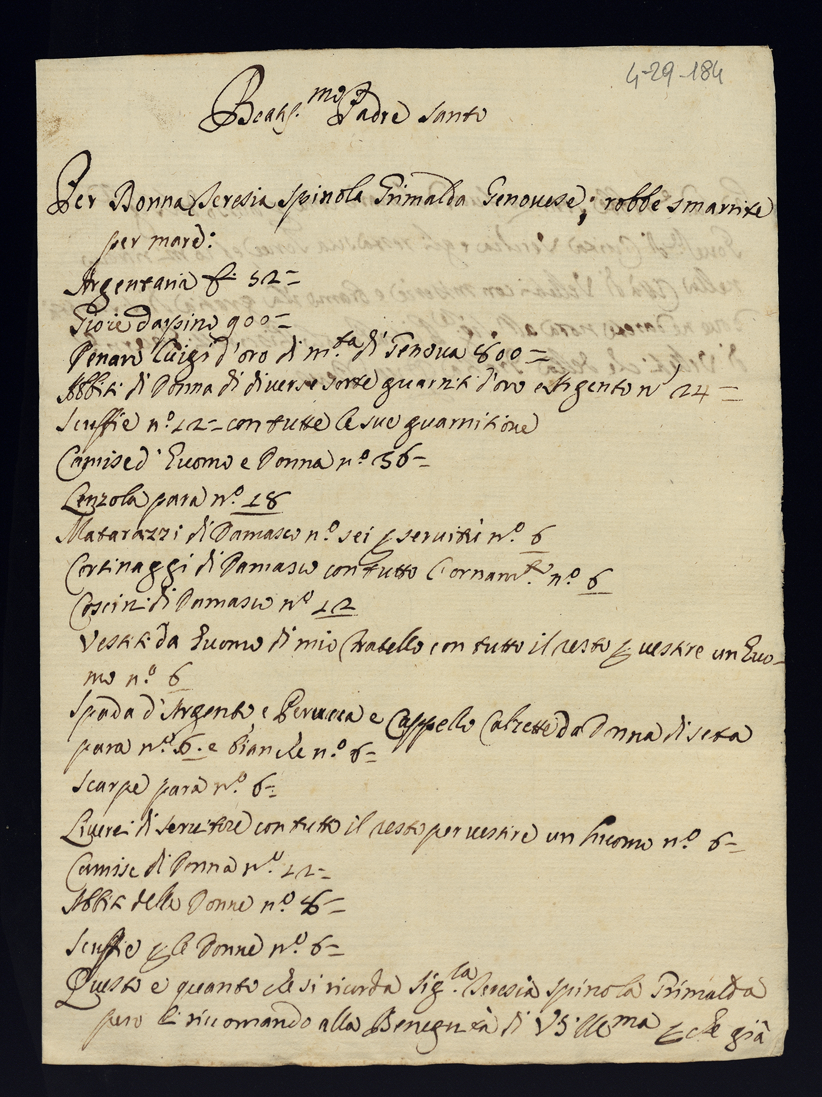 4-29-184
Beatis.mo Padre Santo
Per Donna Teresia Spinola Grimalda Genouese; robbe smarrite
per mare:
Argentaria £ 52=
Gioie da 900=
Denari Luigi d'oro di m.ta di Genoua 800=
Abbiti di Donna di diuerse sorte guarniti d'oro e Argento n.° 24=
Scuffie n.° 12= con tutte le sue guarnitione
Camise d'Huomo e Donna n.° 36=
Lenzola para n.° 18
Matarazzi di Damasco n.° sei p seruitù n.° 6
Cortinaggi di Damasco con tutto l'ornam.to n.° 6
Coscini di Damasco n.° 12
Vestiti da Huomo di mio fratello con tutto il resto p uestire un Huo-
mo n.° 6
Spada d'Argento e Perucca e Cappello Calzette da Donna di seta
para n.° 6. e bianche n.° 6=
Scarpe para n.° 6=
Liuerei di seruitore con tutto il resto per uestire un huomo n.° 6=
Camise di Donna n.° 12=
Abbiti delle Donne n.° 8=
Scuffie p le Donne n.° 6=
Questo e quanto che si ricorda Sig.ra Teresia Spinola Grimalda
pero li ricomando alla Benegnità di VS Ill.ma p che già